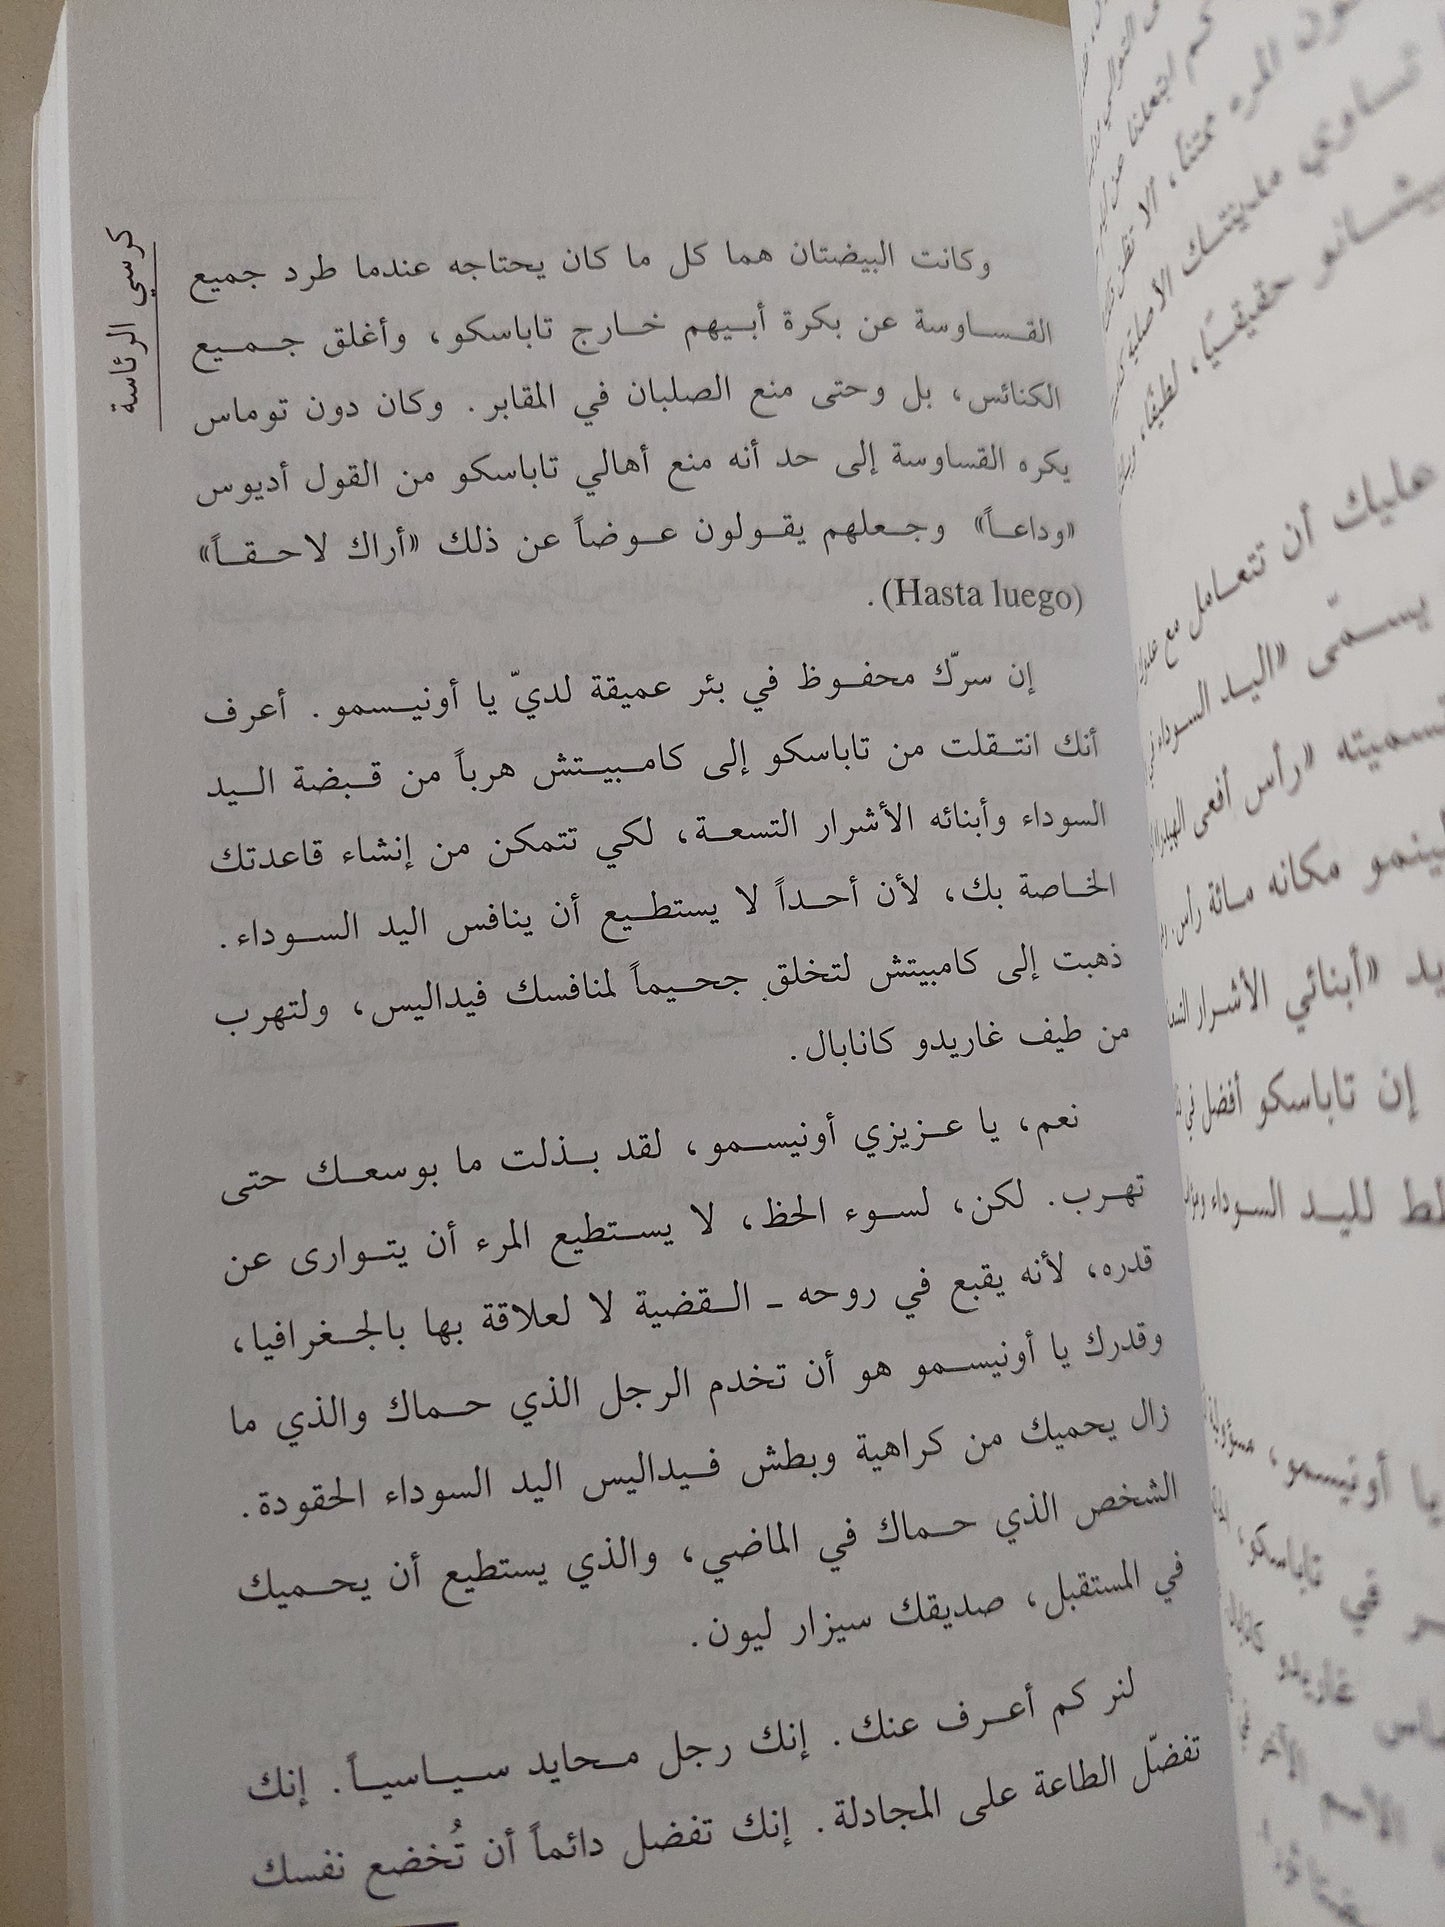 كرسي الرئاسة
وكانت البيضتان هما كل ما كان يحتاجه عندما طرد جميع
القساوسة عن بكرة أبيهم خارج تاباسكو، وأغلق جميع
الكنائس، بل وحتى منع الصلبان في المقابر. وكان دون توماس
يكره القساوسة إلى حد أنه منع أهالي تاباسكو من القول أديوس
«وداعاً» وجعلهم يقولون عوضاً عن ذلك «أراك لاحقاً»
(Hasta luego).
إن سرّك محفوظ في بئر عميقة لديّ يا أونيسمو. أعرف
أنك انتقلت من تاباسكو إلى كامبيتش هرباً من قبضة اليد
السوداء وأبنائه الأشرار التسعة، لكي تتمكن من إنشاء قاعدتك
الخاصة بك، لأن أحداً لا يستطيع أن ينافس اليد السوداء.
ذهبت إلى كامبيتش لتخلق جحيماً لمنافسك فيداليس، ولتهرب
من طيف غاريدو كانابال.
نعم، يا عزيزي أونيسمو، لقد بذلت ما بوسعك حتى
تهرب. لكن، لسوء الحظ، لا يستطيع المرء أن يتوارى عن
قدره، لأنه يقبع في روحه ـ القضية لا لعلاقة بها بالجغرافيا،
وقدرك يا أونيسمو هو أن تخدم الرجل الذي حماك والذي ما
زال يحميك من كراهية وبطش فيداليس اليد السوداء الحقودة.
الشخص الذي حماك في الماضي، والذي يستطيع أن يحميك
في المستقبل، صديقك سيزار ليون.
لنر كم أعرف عنك. إنك رجل محايد سياسياً. إنك
تفضّل الطاعة على المجادلة. إنك تفضل دائماً أن تُخضع نفسك
تساوي مدينتك الأصلية
حقيقيًا، لطيفًا،
عليك أن تتعامل مع
يسمّى «اليد السوداء
تسميته «رأس أفعى
مكانه مائة رأس.
«أبنائي الأشرار
إن تاباسكو أفضل
لليد السوداء
يا أونيسمو،
في تاباسكو،
غاريدو